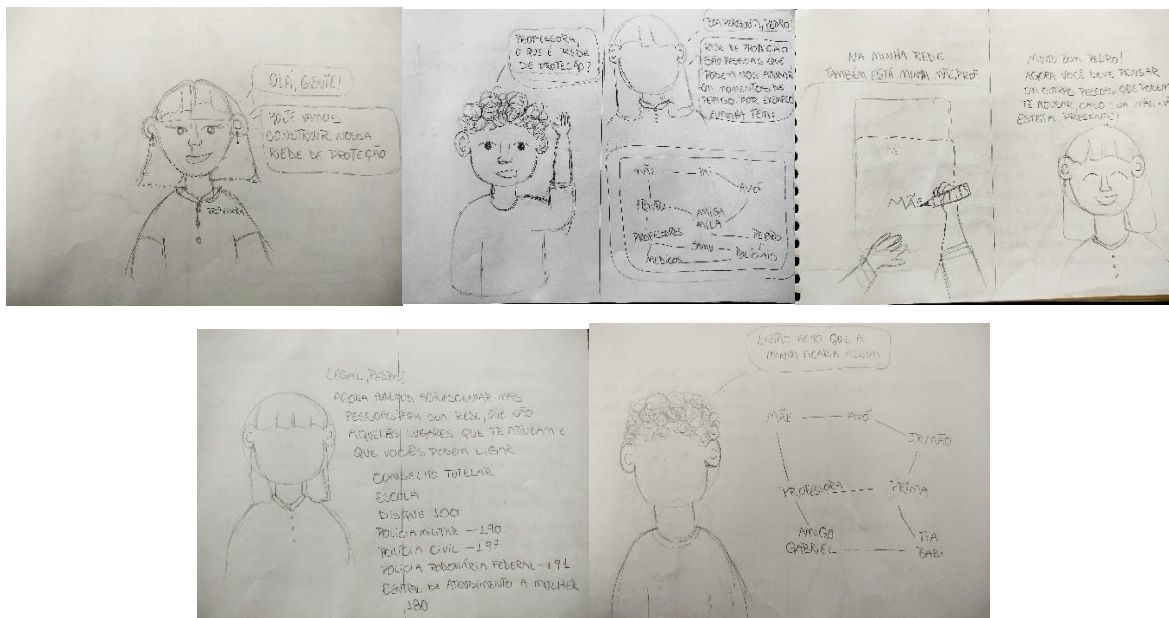 OLÁ, GENTE!
HOJE VAMOS
CONSTRUIR NOSSA
REDE DE PROTEÇÃO
PROFESSORA
PROFESSORA,
O QUE É REDE
DE PROTEÇÃO?
BOA PERGUNTA, PEDRO
REDE DE PROTEÇÃO
SÃO PESSOAS QUE
PODEM NOS AJUDAR
EM MOMENTOS DE
PERIGO. POR EXEMPLO
A MINHA TEM:
MÃE PAI
AVÓ
IRMÃO AMIGA
MILA
PROFESSORES PEDRO
SAMU
MÉDICOS POLICIAIS
NA MINHA REDE
TAMBÉM ESTÁ MINHA MÃE, PROF
MÃE
MUITO BOM PEDRO!
AGORA VOCÊ DEVE PENSAR
EM OUTRAS PESSOAS QUE PODEM
TE AJUDAR, CASO SUA MÃE
ESTEJA PRESENTE!
LEGAL, PEDRO!
AGORA VAMOS ACRESCENTAR MAIS
PESSOAS PRA SUA REDE, QUE SÃO
AQUELES LUGARES QUE TE AJUDAM E
QUE VOCÊS PODEM LIGAR
CONSELHO TUTELAR
ESCOLA
DISQUE 100
POLÍCIA MILITAR - 190
POLÍCIA CIVIL - 197
POLÍCIA RODOVIÁRIA FEDERAL - 191
CENTRAL DE ATENDIMENTO A MULHER
180
ENTÃO ACHO QUE A
MINHA FICARIA ASSIM
MÃE AVÓ
IRMÃO
PROFESSORA PRIMA
AMIGO TIA
GABRIEL BABI